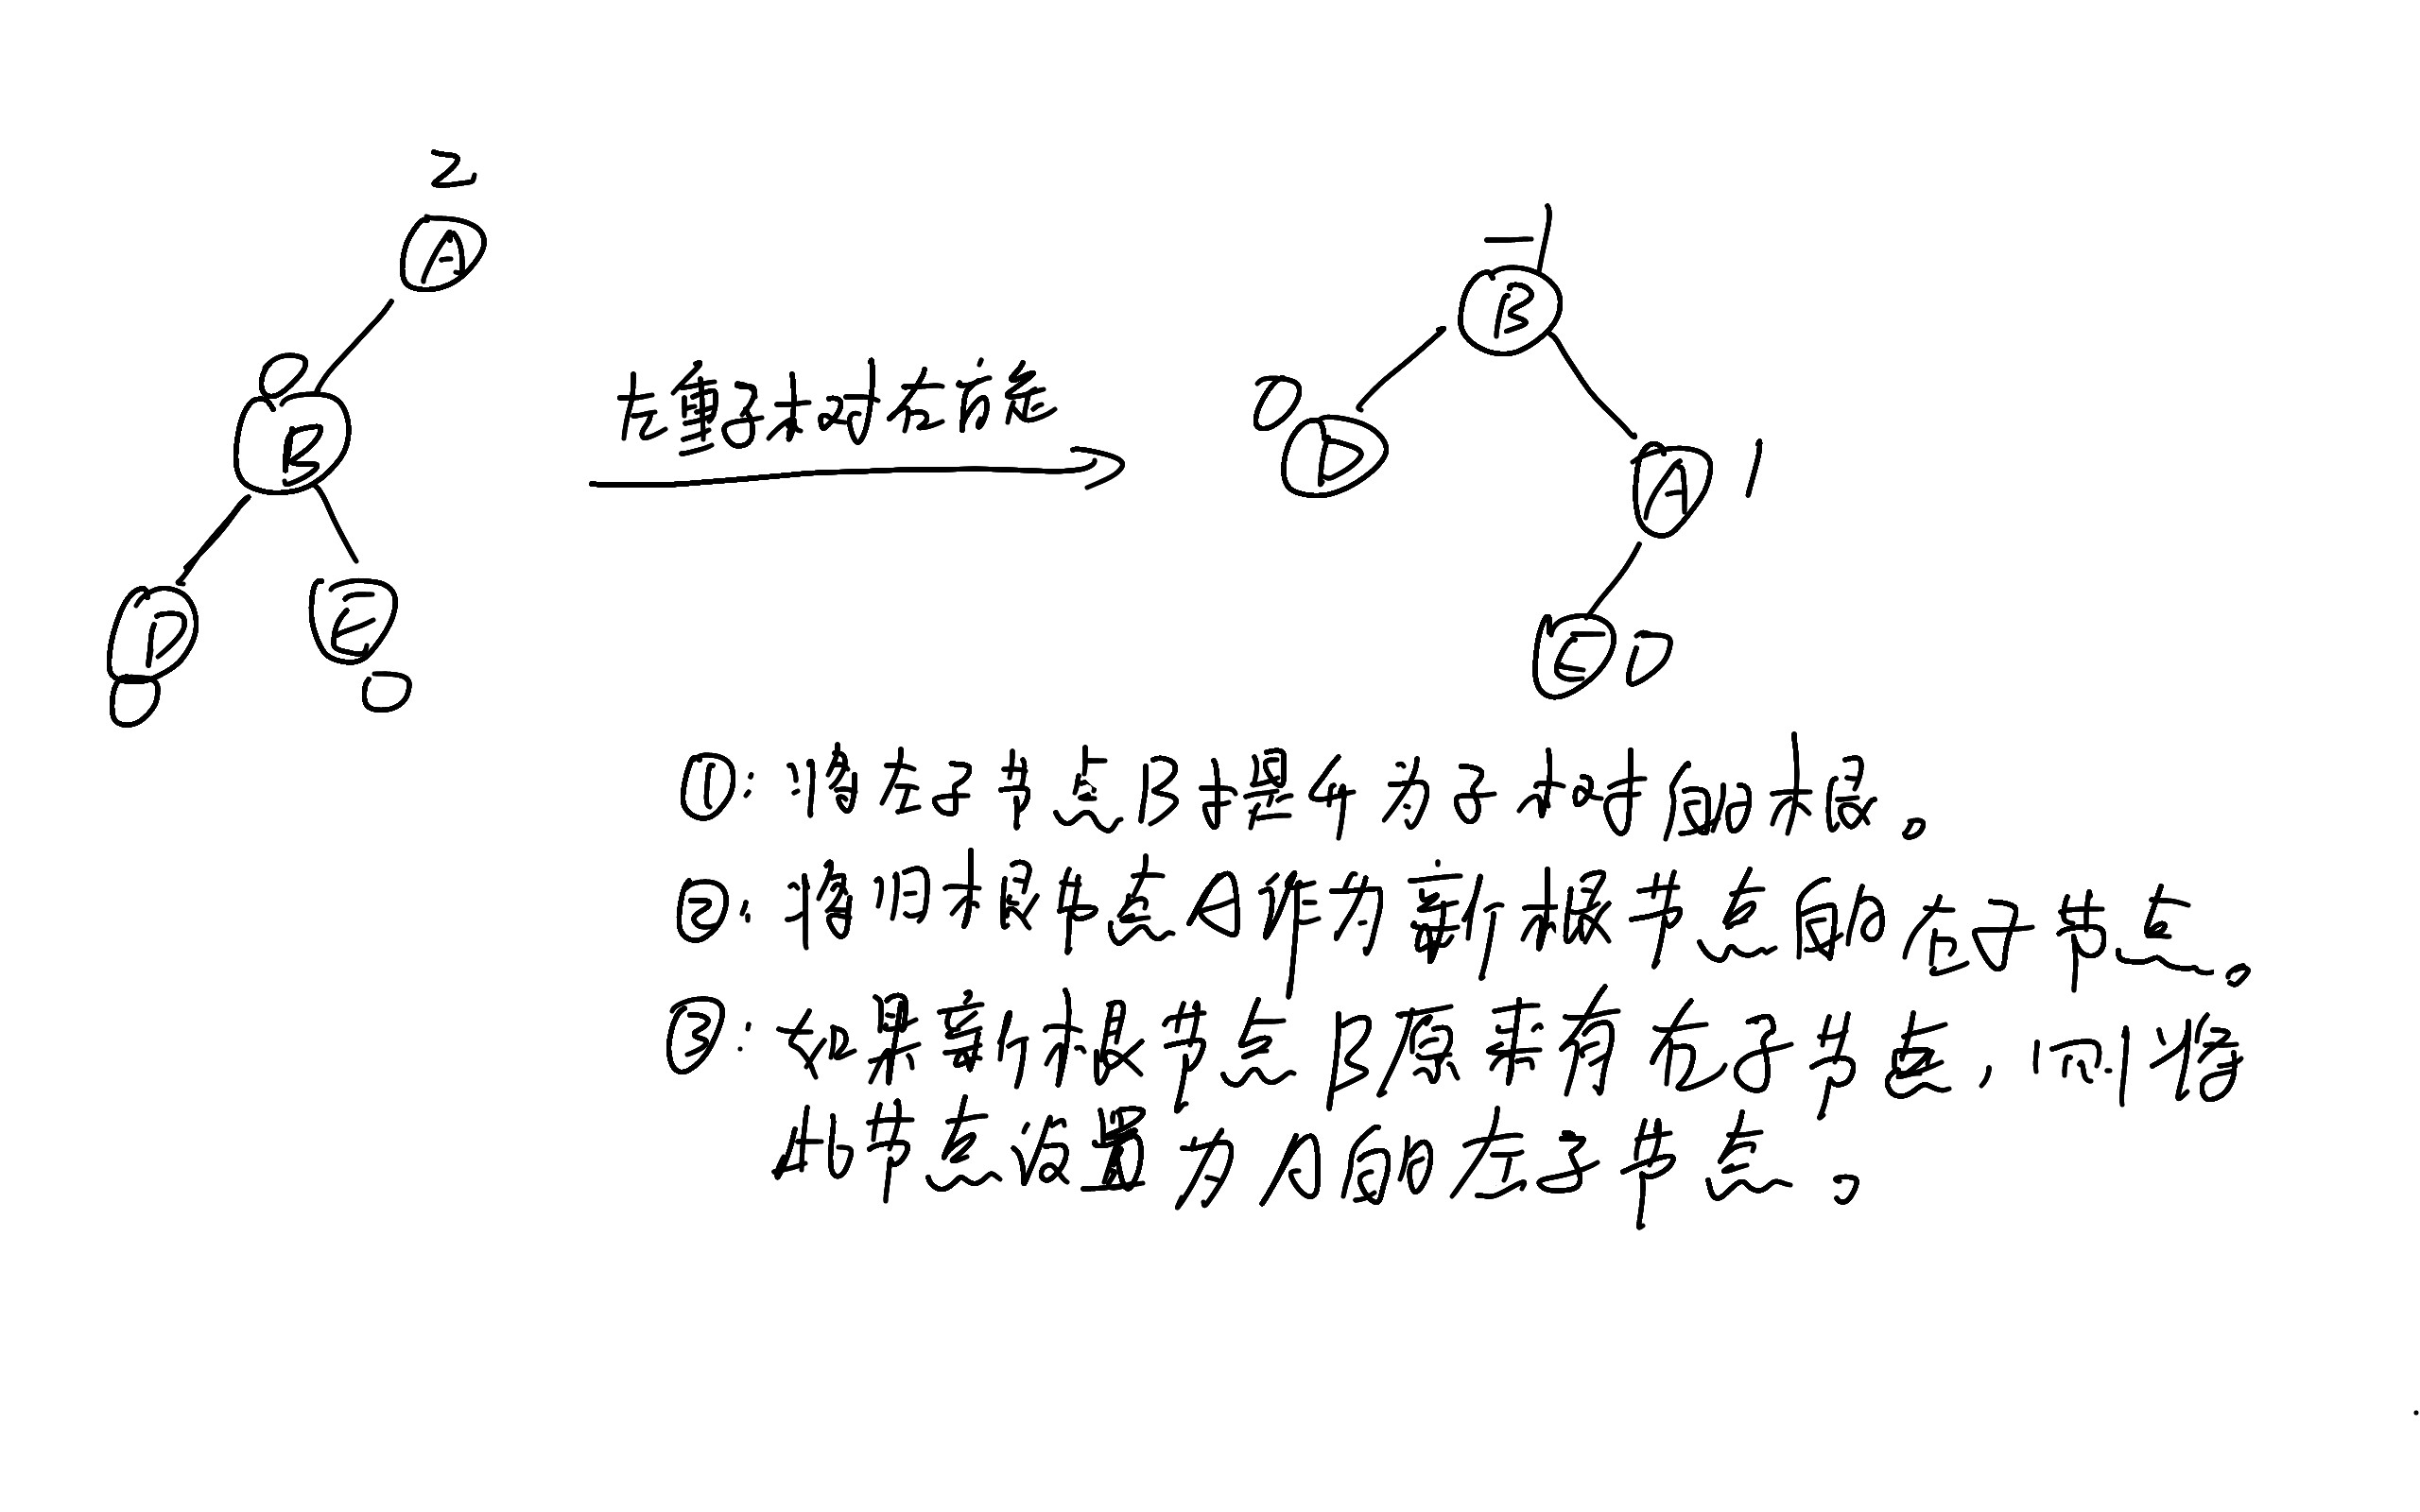 2
A
0
B
D
E
0
0
左重子树右旋
-1
B
0
D
A
1
E
0
①:将左子节点B提升为子树的根。
②:将旧根节点A作为新根节点的右子节点。
③:如果新根节点B原来有右子节点,则将
此节点设置为A的左子节点。